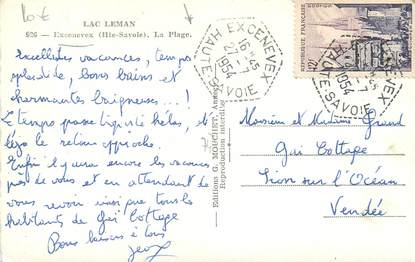 10 €
LAC LEMAN
926 - Excenevex (Hte-Savoie). La Plage.
Excellentes vacances, temps
splendide, bons bains et
charmantes baigneuses...!
Le temps passe hélas,
le retour approche.
Enfin il y aura encore les vacances
près de vous et en attendant de
vous revoir ainsi que tous les
habitants de Gai Cottage
Bons baisers à tous
Editions G. MORCHET, Annecy
Reproduction interdite
EXCENEVEX
16 H 45
21 - 7
1954
HAUTE-SAVOIE
EXCENEVEX
H 45
- 7
1954
HAUTE-SAVOIE
POSTES
REPUBLIQUE FRANÇAISE
12F
Monsieur et Madame Grand
Gai Cottage
Sion sur l'Océan
Vendée